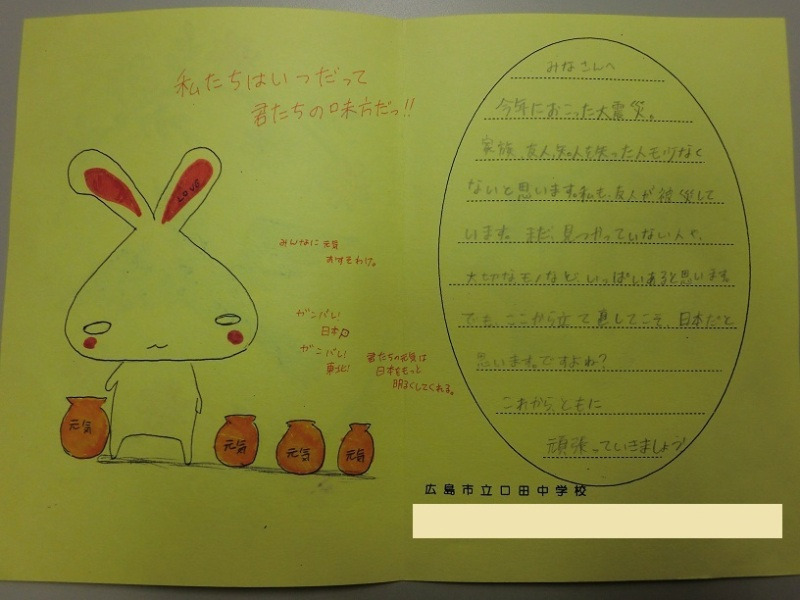 私たちはいつだって
君たちの味方だっ!!
LOVE
みんなに元気
おすそわけ。
ガンバレ!
日本
ガンバレ!
東北!
君たちの元気は
日本をもっと
明るくしてくれる。
元気
元気
元気
元気
みなさんへ
今年におこった大震災。
家族、友人、知人を失った人も少なく
ないと思います。私も、友人が被災して
います。まだ、見つかっていない人や、
大切なモノなど、いっぱいあると思います。
でも、ここから立て直してこそ、日本だと
思います。ですよね?
これから、ともに
頑張っていきましょう
広島市立口田中学校